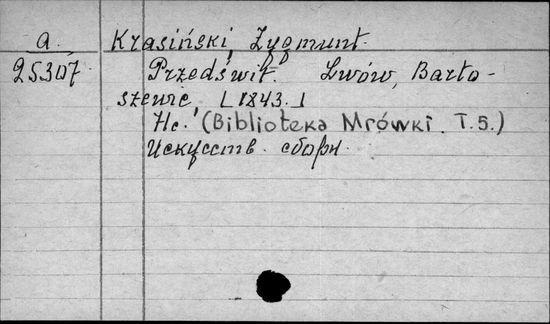 a. Krasiński, Zygmunt.
25307 Przedświt. Lwów, Barto-
szewic [1843.]
Нс. (Biblioteka Mrówki. T.5.)
Искусств. сборн.